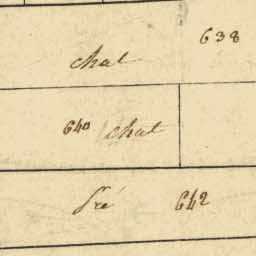 638
chat
640 chat
Pré 642